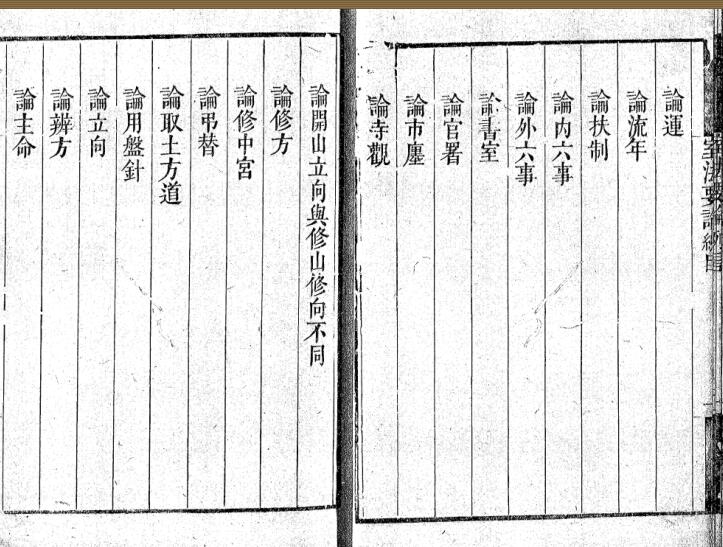 論運
論流年
論扶制
論內六事
論外六事
論書室
論官署
論市廛
論寺觀
論開山立向與修山修向不同
論修方
論修中宮
論弔替
論取土方道
論用盤針
論立向
論辨方
論主命